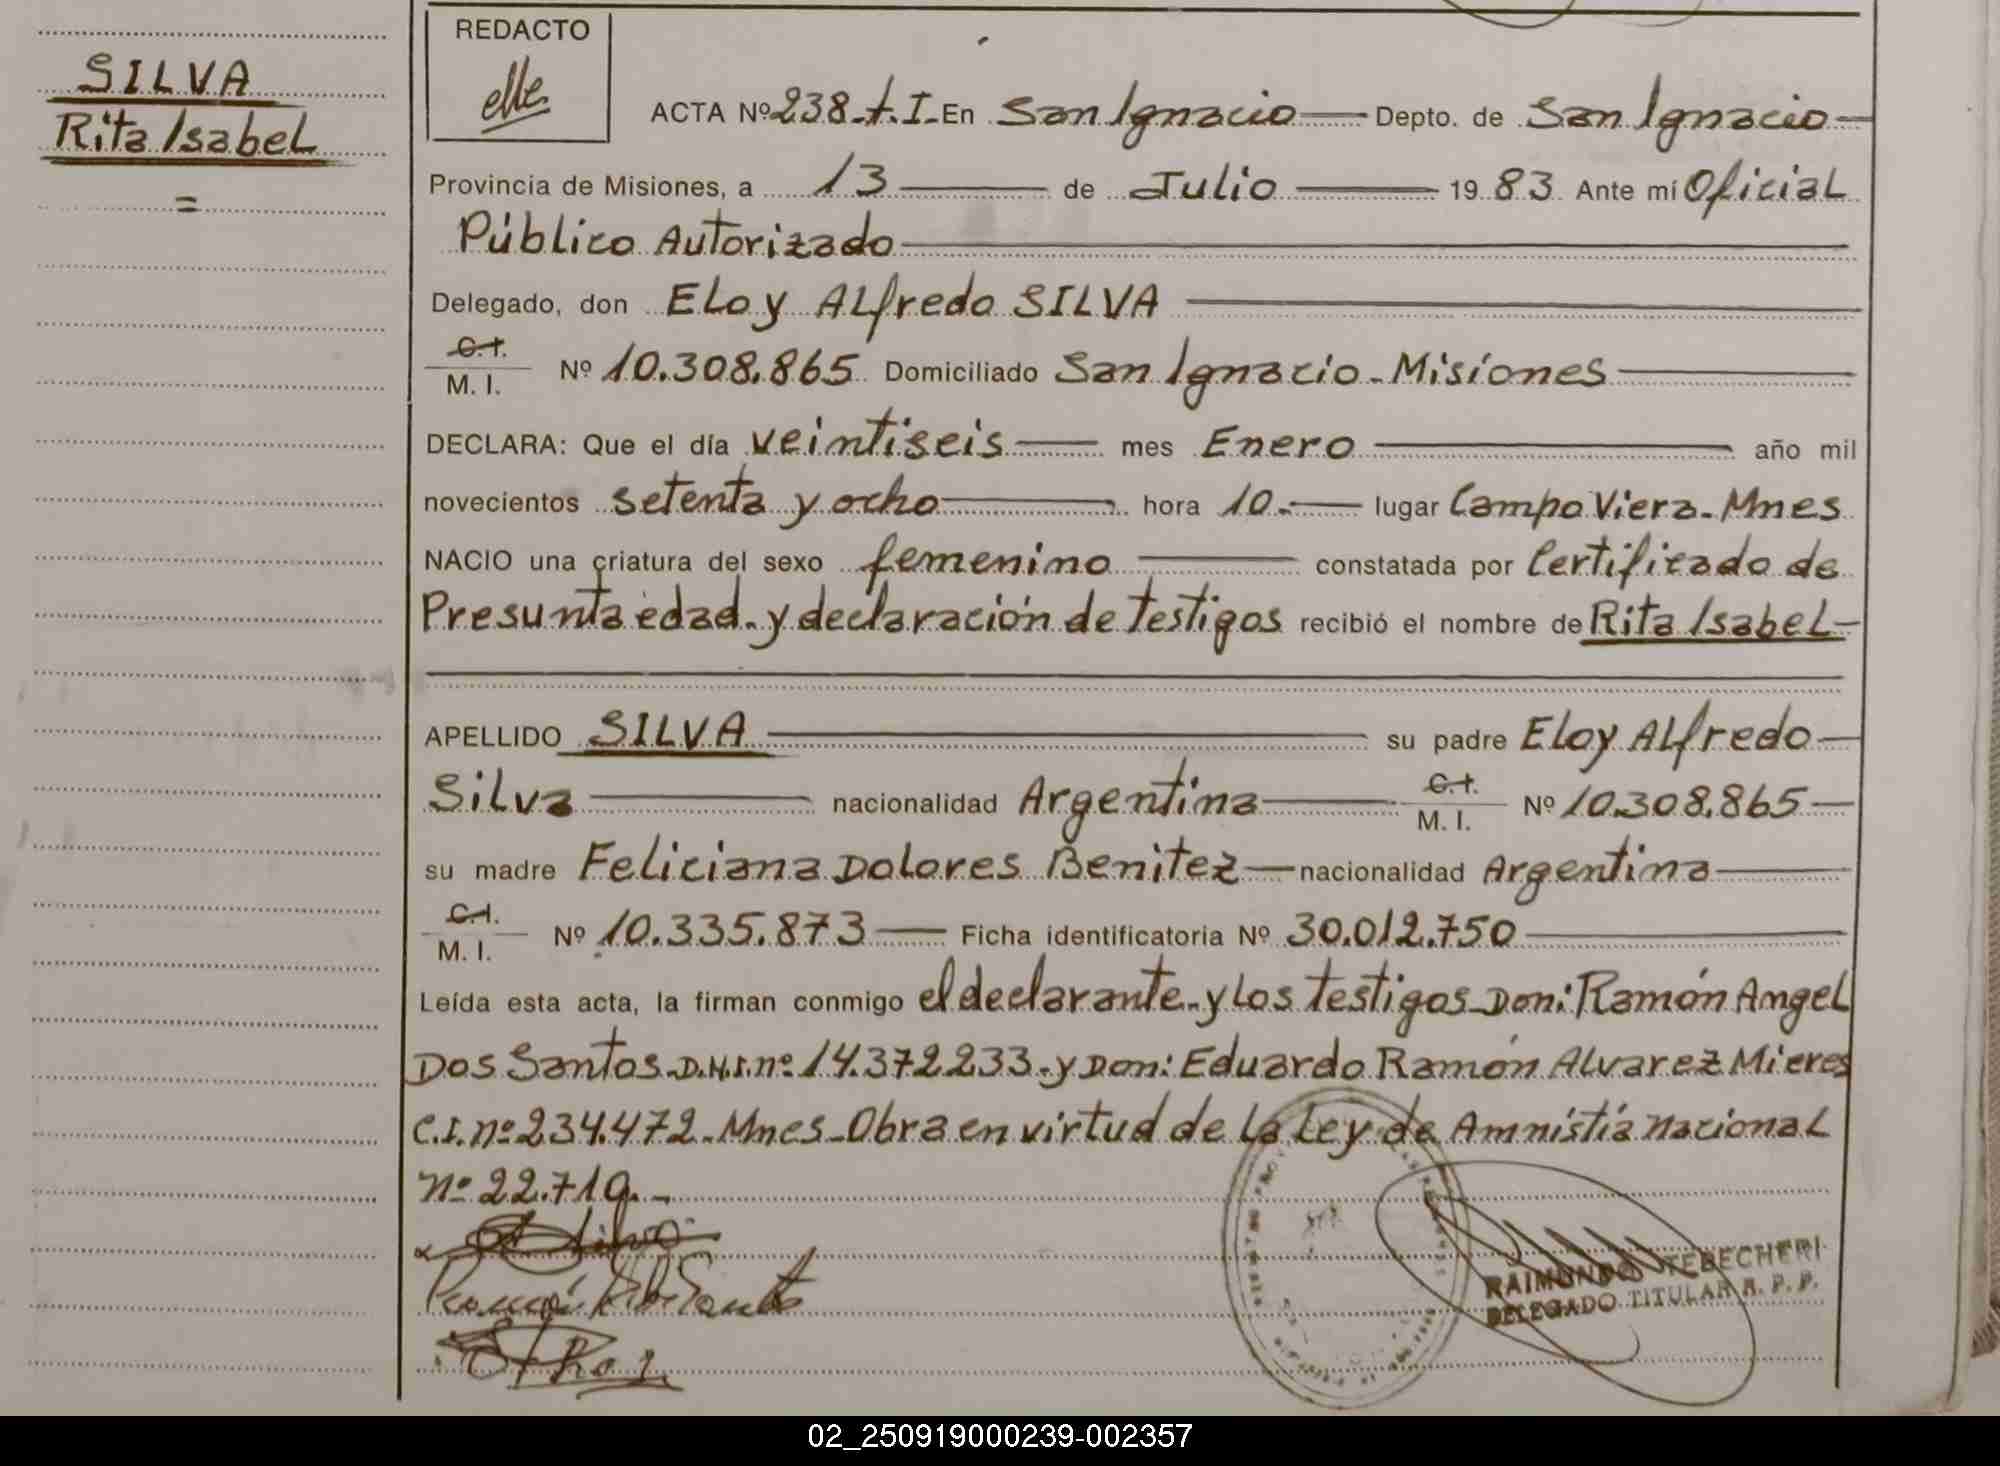 SILVA
Rita Isabel
=
REDACTO
ACTA Nº 238-t.I- En San Ignacio Depto. de San Ignacio
Provincia de Misiones, a 13 de Julio 19 83 Ante mí Oficial
Público Autorizado
Delegado, don Eloy Alfredo SILVA
C.I.
M. I. Nº 10.308.865 Domiciliado San Ignacio - Misiones
DECLARA: Que el día veintiseis mes Enero año mil
novecientos setenta y ocho hora 10.- lugar Campo Viera - Mnes
NACIO una criatura del sexo femenino constatada por Certificado de
Presunta edad - y declaración de testigos recibió el nombre de Rita Isabel -
APELLIDO SILVA su padre Eloy Alfredo
Silva nacionalidad Argentina C.I. M. I. Nº 10.308.865
su madre Feliciana Dolores Benitez nacionalidad Argentina
C.I.
M. I. Nº 10.335.873 Ficha identificatoria Nº 30.012.750
Leída esta acta, la firman conmigo el declarante - y los testigos Don: Ramón Angel
Dos Santos - D.N.I. nº 14.372.233 - y Don: Eduardo Ramón Alvarez Mieres
C.I. nº 234.472 - Mnes - Obra en virtud de la Ley de Amnistía Nacional
nº 22.710. -
RAIMUNDO TEBECHERI
DELEGADO TITULAR R. P. P.
02_250919000239-002357